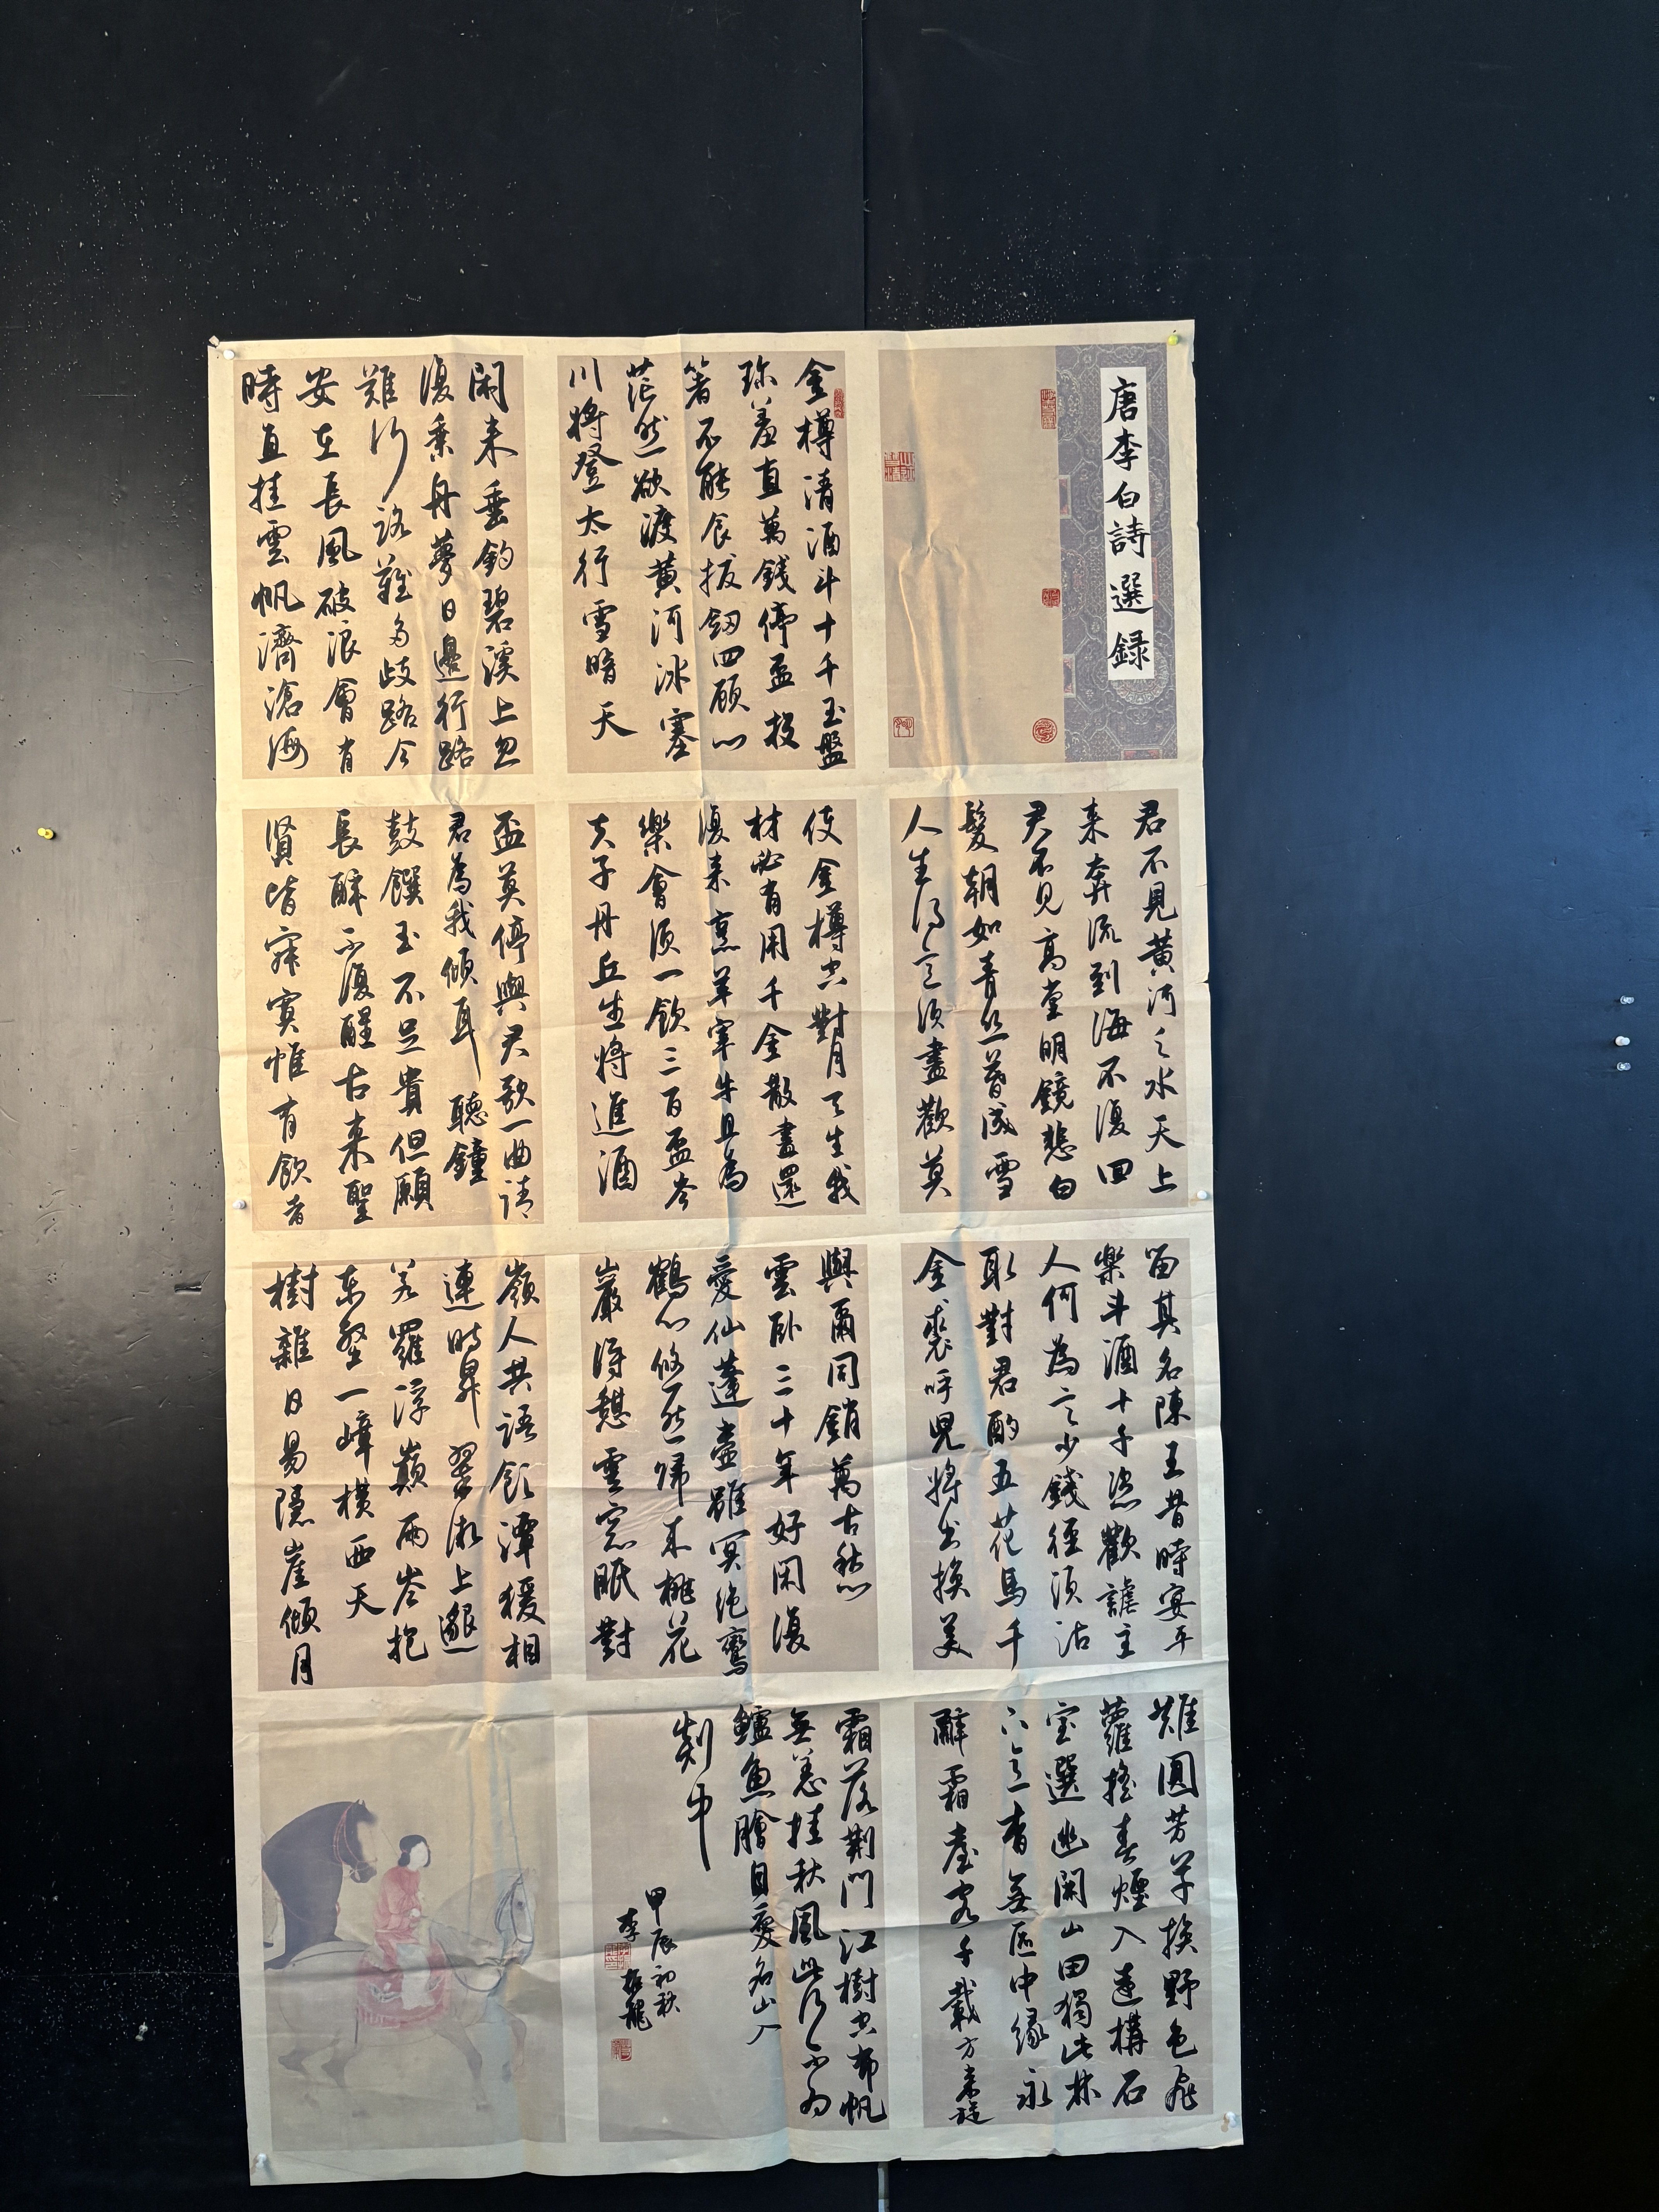 唐李白詩選録
金樽清酒斗十千玉盤
珎羞直萬錢停盃投
箸不能食拔劒四顧心
茫然欲渡黄河冰塞
川將登太行雪暗天
閑来垂釣碧溪上忽
復乘舟夢日邊行路
難行路難多歧路今
安在長風破浪會有
時直挂雲帆濟滄海
君不見黄河之水天上
来奔流到海不復回
君不見高堂明鏡悲白
髮朝如青絲暮成雪
人生得意須盡歡莫
使金樽空對月天生我
材必有用千金散盡還
復来烹羊宰牛且為
樂會須一飲三百盃岑
夫子丹丘生將進酒
盃莫停與君歌一曲請
君為我傾耳聽鐘
鼓饌玉不足貴但願
長醉不復醒古来聖
賢皆寂寞惟有飲者
留其名陳王昔時宴平
樂斗酒十千恣歡謔主
人何為言少錢徑須沽
取對君酌五花馬千
金裘呼兒將出換美
與爾同銷萬古愁
雲卧三十年好閑復
愛仙蓬壺雖冥絶鸞
鶴心悠然歸来桃花
巖得憩雲窓眠對
嶺人共語飲潭猿相
連時昇翠微上邈
若羅浮巔兩岑抱
東壑一嶂橫西天
樹雜日易隱崖傾月
難圓芳草換野色飛
蘿搖春煙入遠構石
室選幽開山田獨此林
下意杳無區中緣永
辭霜臺客千載方来旋
霜落荊門江樹空布帆
無恙挂秋風此行不為
鱸魚膾自愛名山入
剡中
甲辰初秋